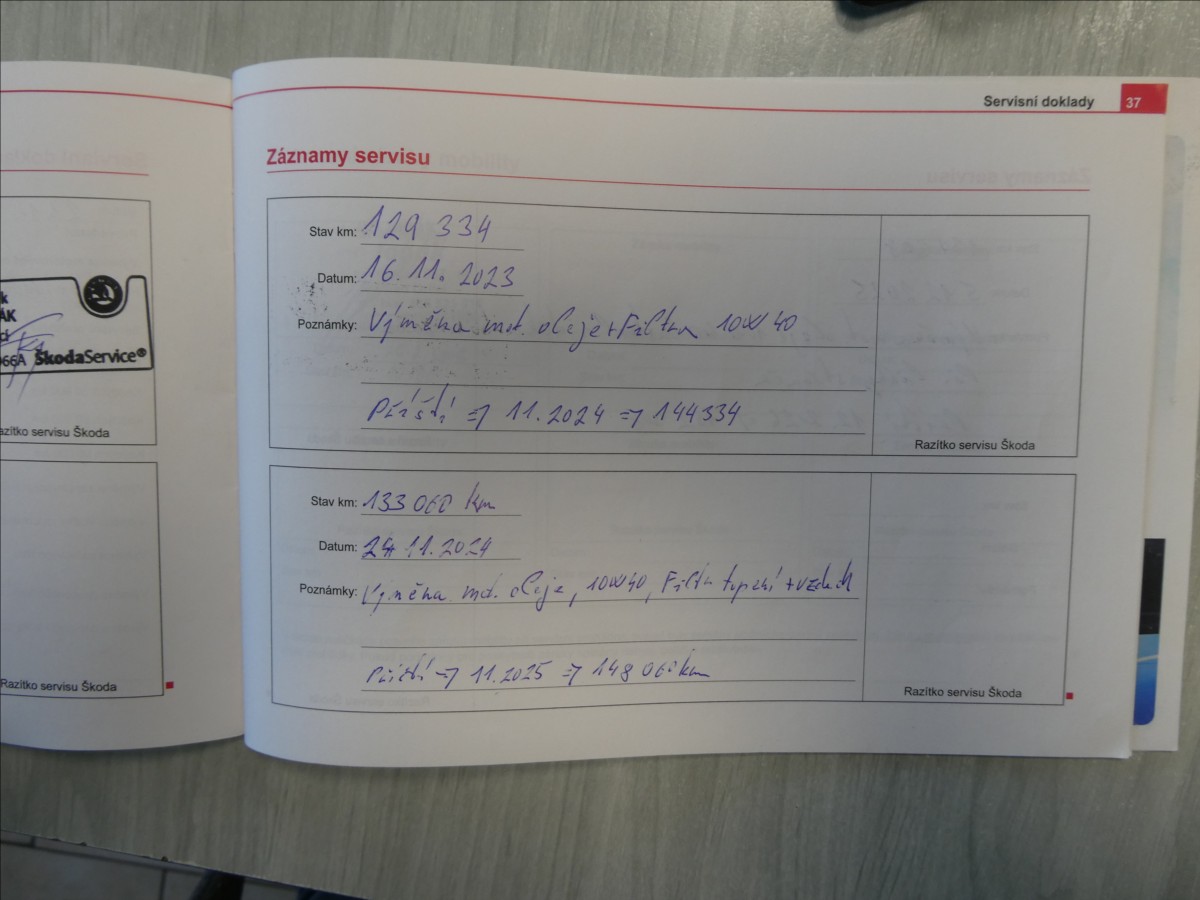 k
ÁK
066A ŠkodaService®
Razítko servisu Škoda
Razítko servisu Škoda
Servisní doklady 37
Záznamy servisu
Stav km: 129 334
Datum: 16.11.2023
Poznámky: Výměna mot. oleje + Filtru 10W40
Příští => 11.2024 => 144334
Razítko servisu Škoda
Stav km: 133 060 km
Datum: 11.2024
Poznámky: Výměna mot. oleje, 10W40, Filtr topení + vzduch
Příští => 11.2025 => 148 060 km
Razítko servisu Škoda